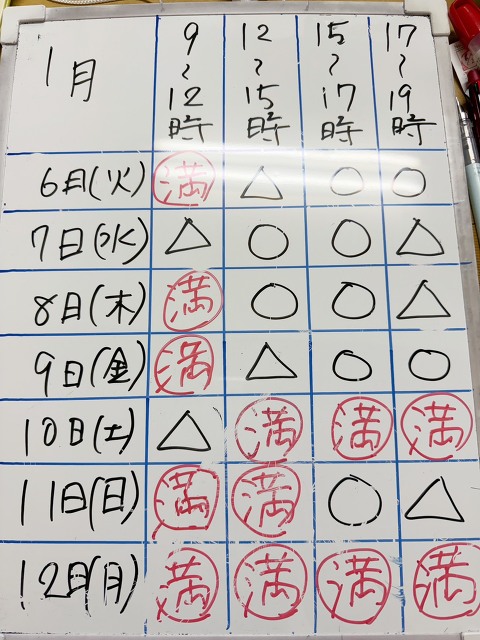 1月 9～12時 12～15時 15～17時 17～19時
6日(火) 満 △ ○ ○
7日(水) △ ○ ○ △
8日(木) 満 ○ ○ △
9日(金) 満 △ ○ ○
10日(土) △ 満 満 満
11日(日) 満 満 ○ △
12日(月) 満 満 満 満